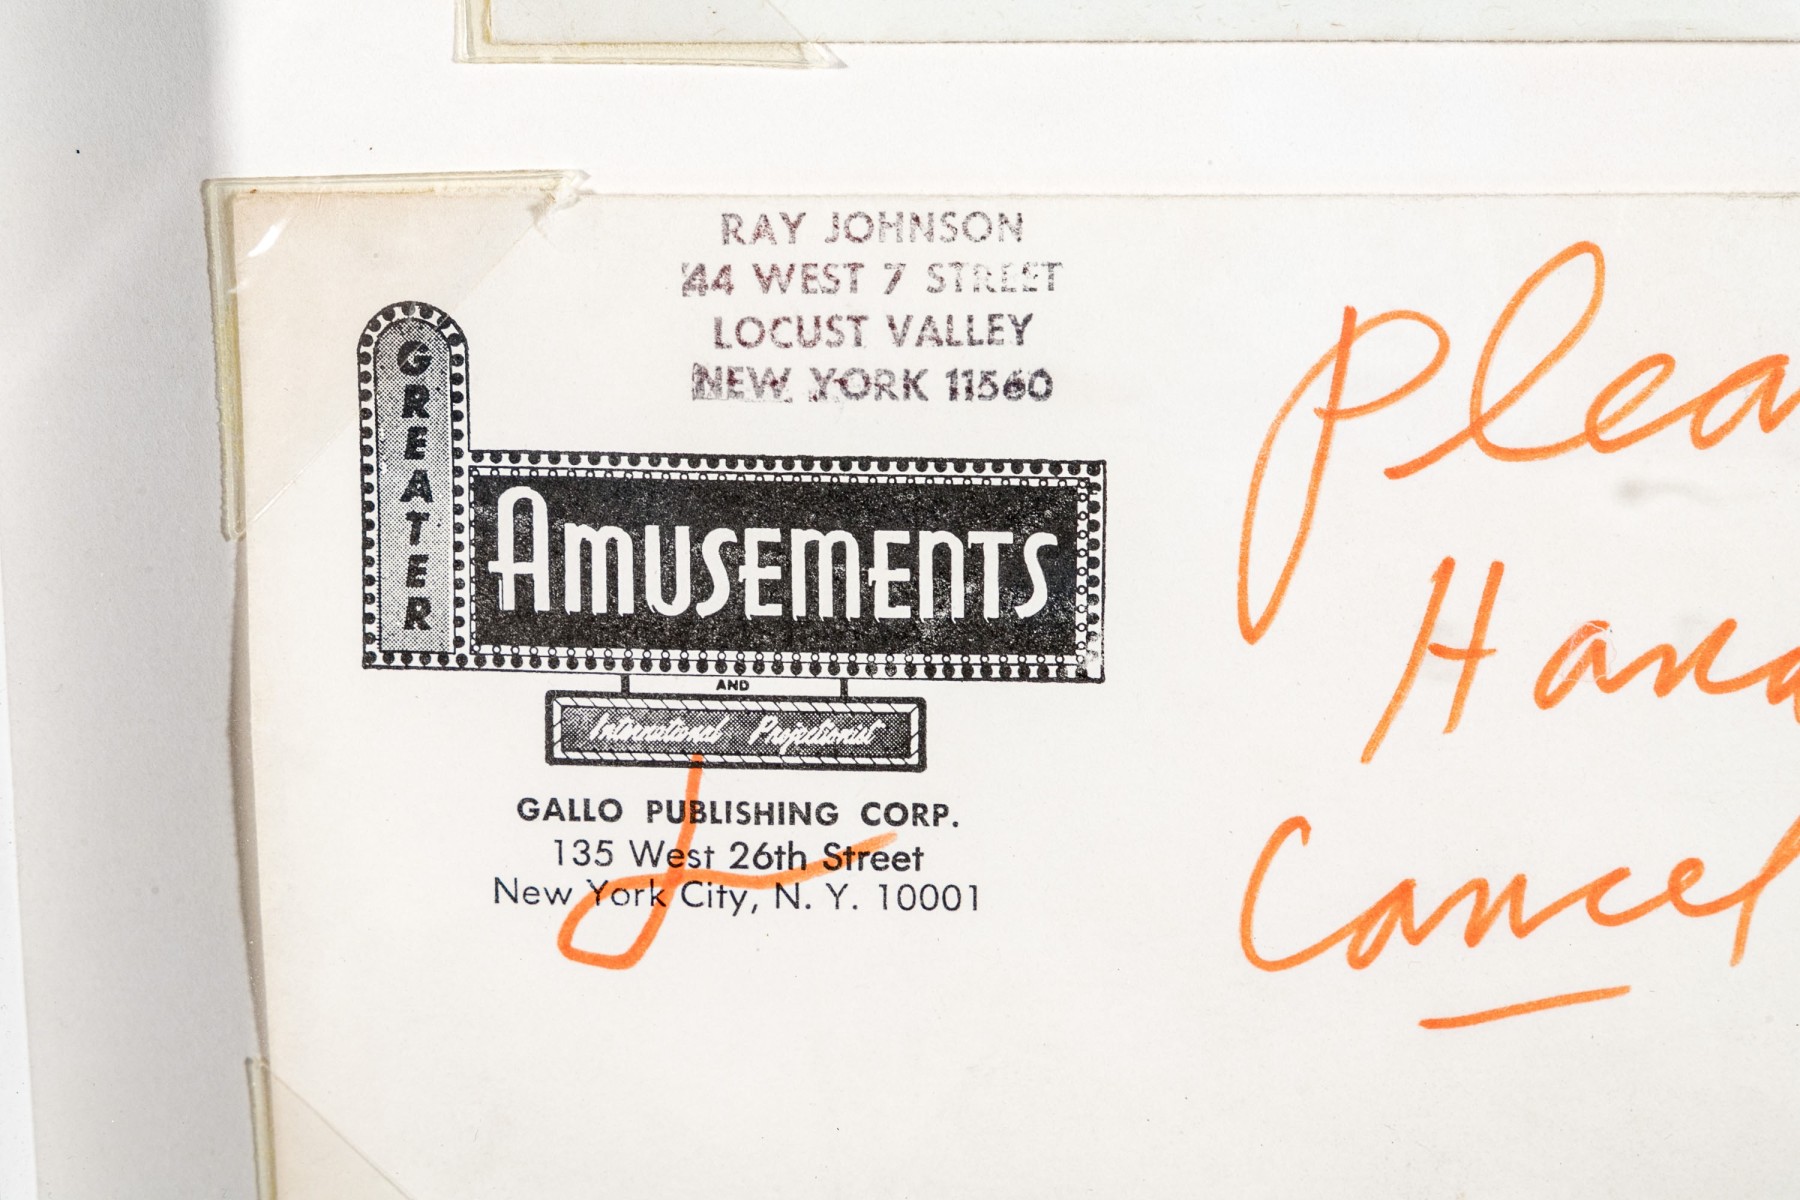 RAY JOHNSON
44 WEST 7 STREET
LOCUST VALLEY
NEW YORK 11560
GREATER
AMUSEMENTS
AND
International Projectionist
GALLO PUBLISHING CORP.
135 West 26th Street
New York City, N. Y. 10001
Plea
Hand
Cancel